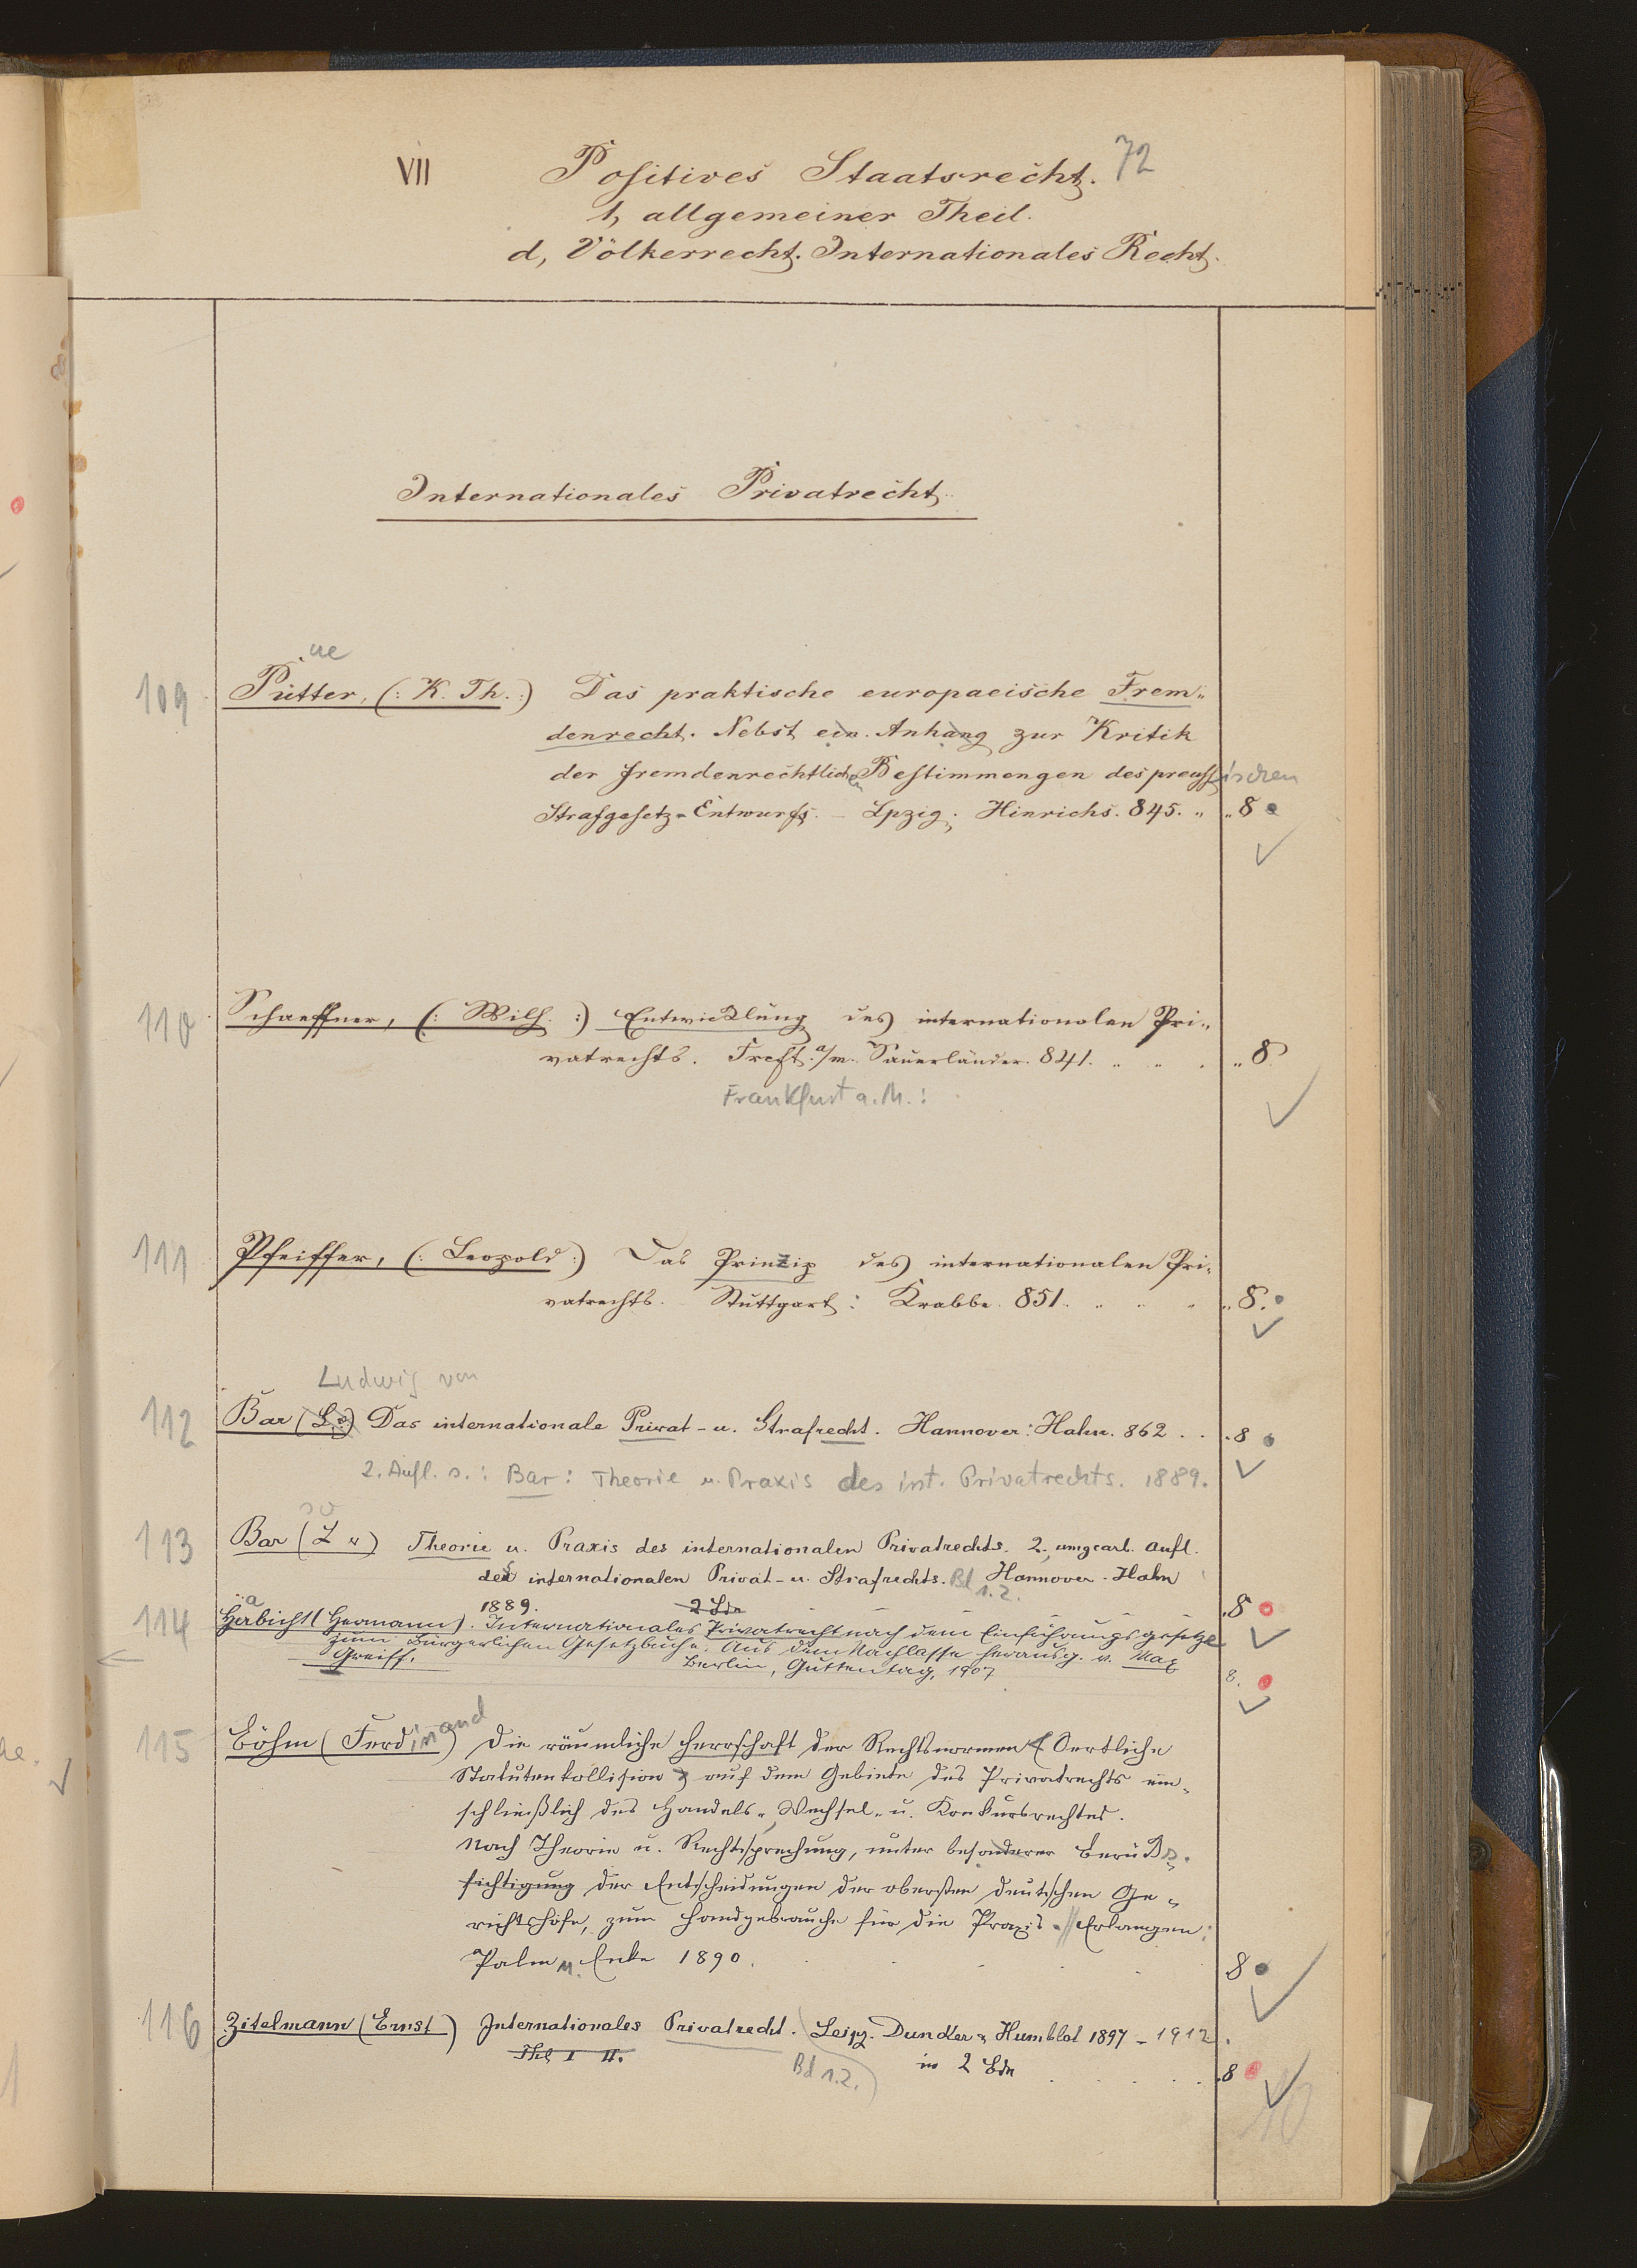 VII Positives Staatsrecht. 72
1, allgemeiner Theil.
d, Völkerrecht. Internationales Recht.
Internationales Privatrecht
ue
109 Pütter, (: K. Th. :) Das praktische europaeische Frem„
denrecht. Nebst ein. Anhang zur Kritik
der fremdenrechtlichen Bestimmengen des preussischen
Strafgesetz-Entwurfs. – Lpzig: Hinrichs. 845. „ „ 8
110 Schaeffner, (: Wilh. :) Entwicklung des internationalen Pri„
vatrechts. Frcft. a/m. Sauerländer. 841. „ „ . „ 8
Frankfurt a. M.:
111 Pfeiffer, (: Leopold :) Das Prinzip des internationalen Pri„
vatrechts. Stuttgart: Krabbe. 851. „ 8.
Ludwig von
112 Bar (L. v.) Das internationale Privat- u. Strafrecht. Hannover: Hahn. 862 . . . 8
2. Aufl. s.: Bar: Theorie u. Praxis des int. Privatrechts. 1889.
113 Bar (L v) Theorie u. Praxis des internationalen Privatrechts. 2., umgearb. Aufl.
des internationalen Privat- u. Strafrechts. Bd 1.2. Hannover. Hahn
1889. 2 Bde . 8
114 Habicht (Hermann). Internationales Privatrecht nach dem Einführungsgesetze
zum Bürgerlichen Gesetzbuche. Aus dem Nachlasse herausg. v. Max
Greiff. Berlin, Guttentag, 1907 8.
115 Böhm (Ferdinand) Die räumliche Herrschaft der Rechtsnormen (Oertliche
Statutenkollision) auf dem Gebiete des Privatrechts ein„
schließlich des Handels-, Wechsel- u. Konkursrechtes.
Nach Theorie u. Rechtsprechung, unter besonderer Berück„
sichtigung der Entscheidungen der obersten deutschen Ge„
richtshöfe, zum Handgebrauche für die Praxis. // Erlangen:
Palm u. Enke 1890. 8
116 Zitelmann (Ernst) Internationales Privatrecht. Leipz. Duncker & Humblot 1897 – 1912.
Thl I II. Bd 1.2. in 2 Bdn . 8
10